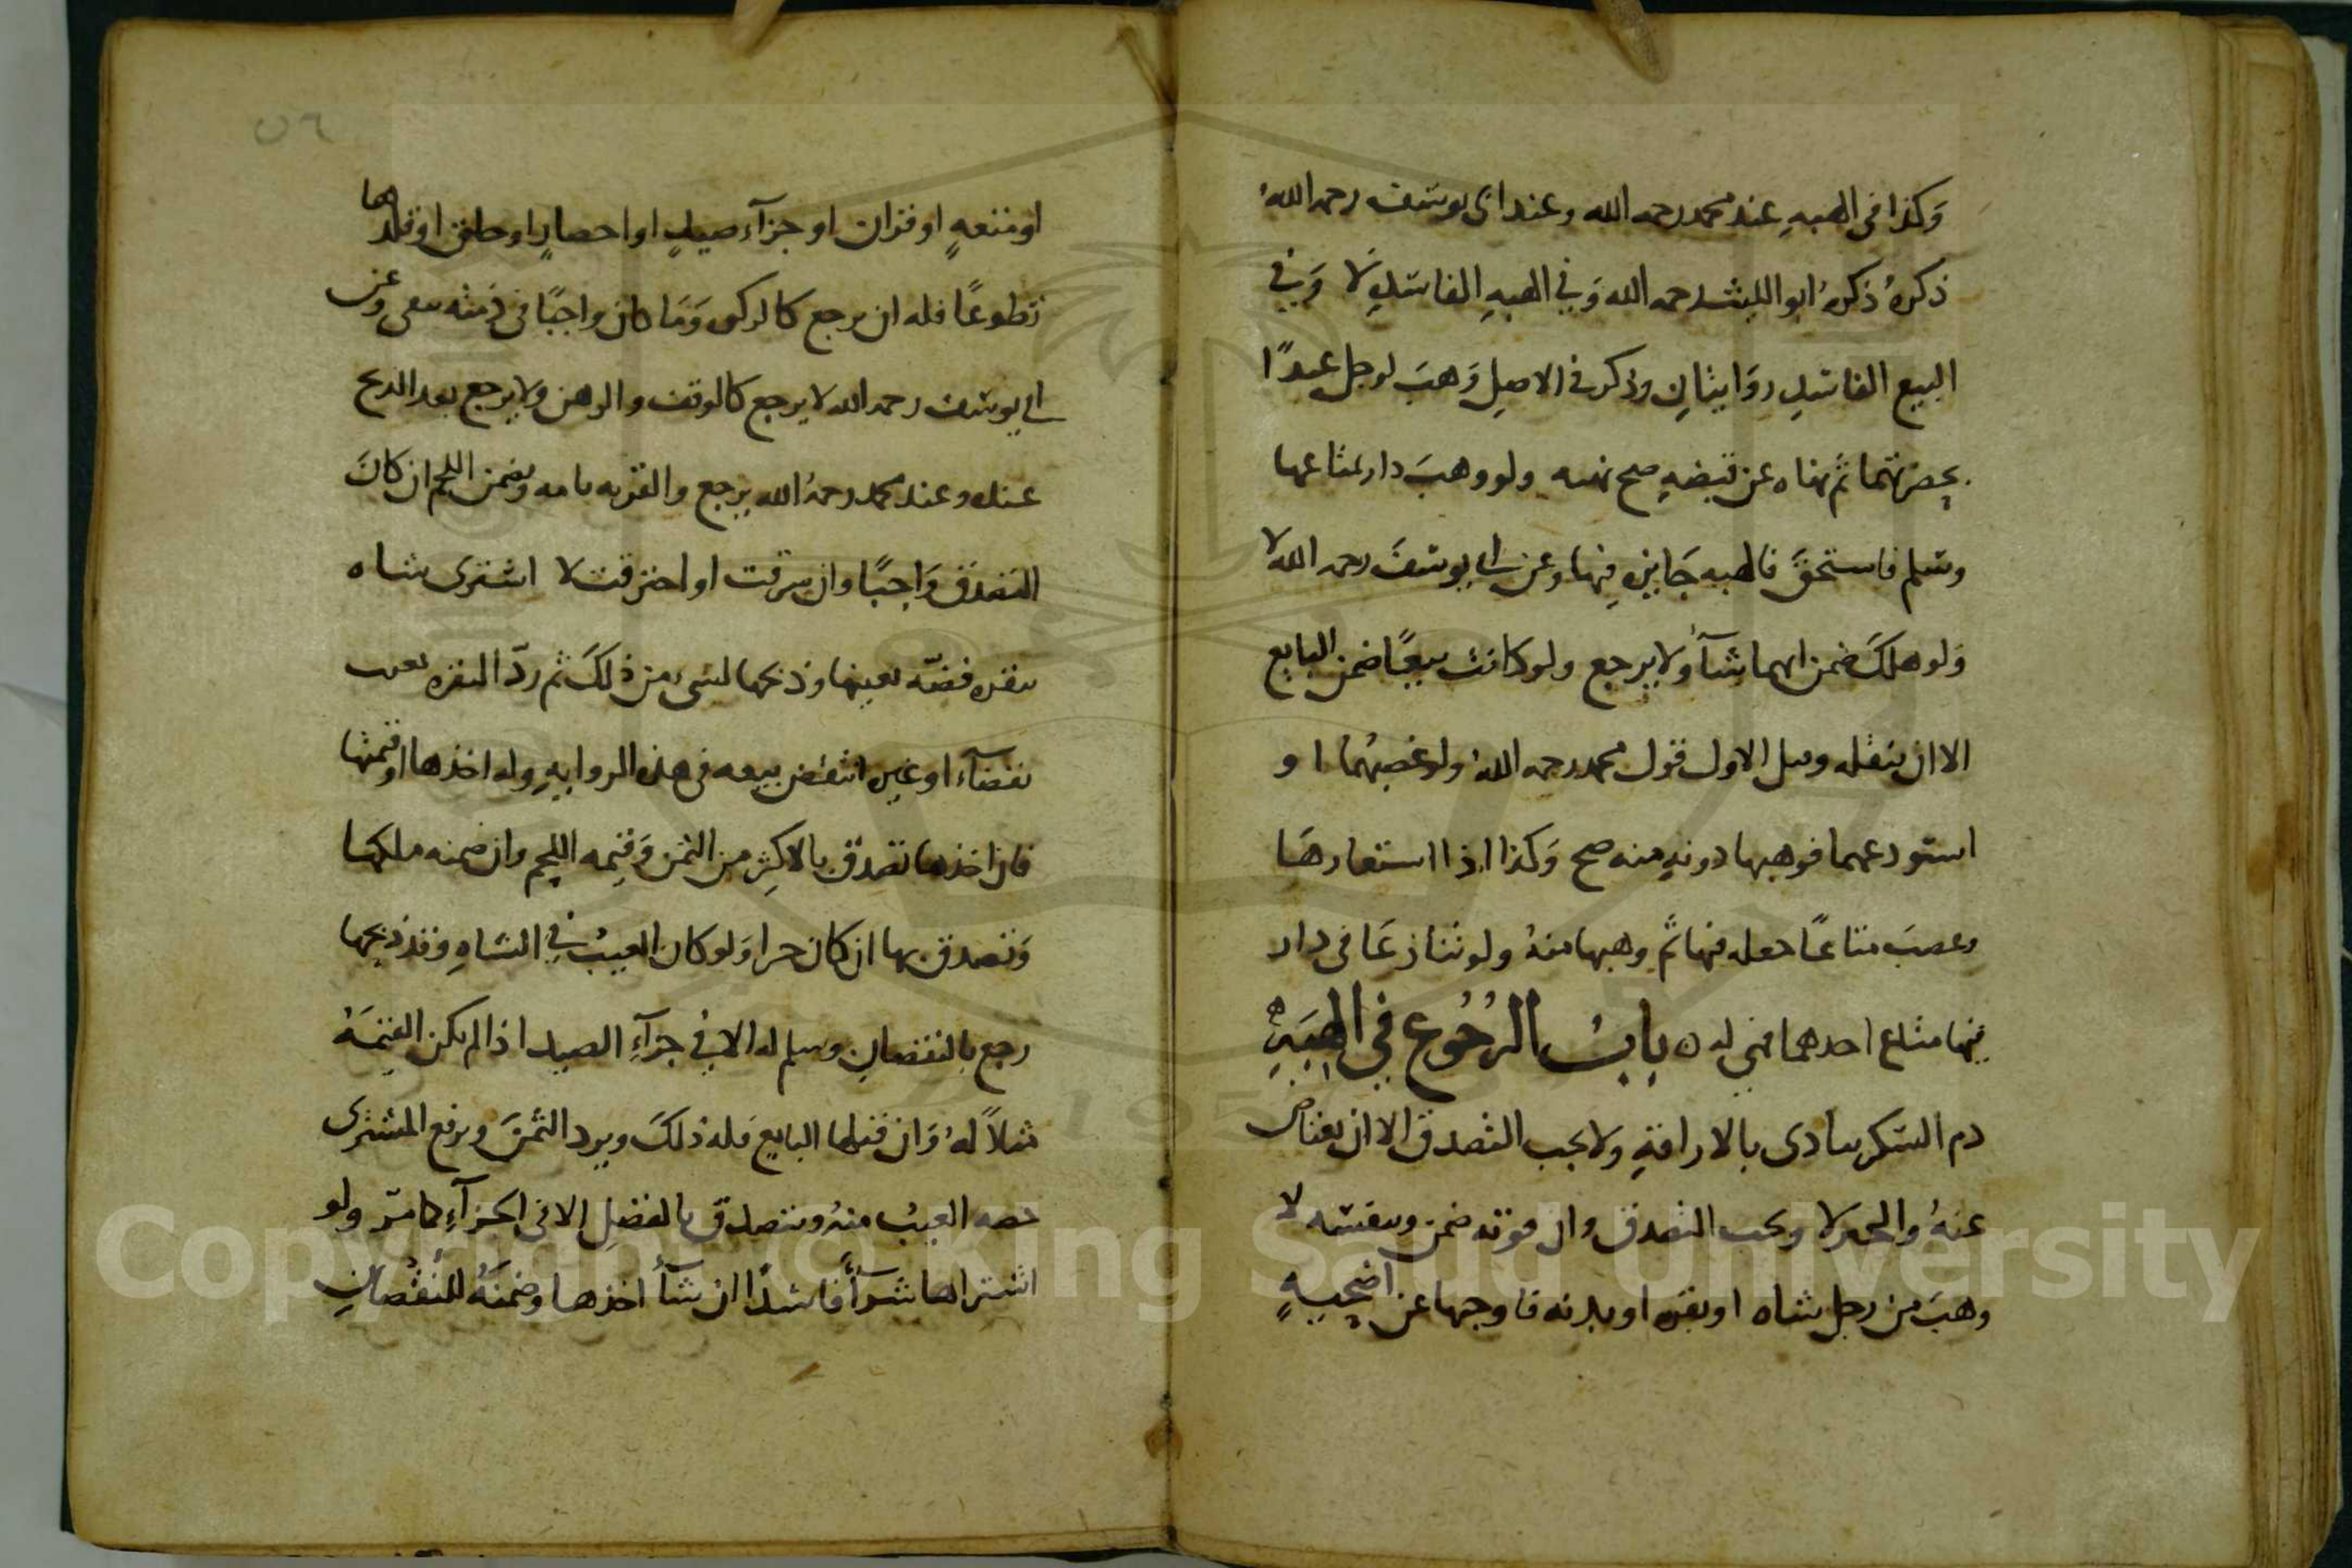 وكذا في الهبه عند محمد رحمه الله وعند ابى يوسف رحمه الله
ذكره ذكره ابو الليث رحمه الله وفي الهبه الفاسد لا وفي
البيع الفاسد روايتان وذكر في الاصل وهب لرجل عبدا
بحضرتهما ثم نهاه عن قبضه صح نهيه ولو وهب دار بمتاعها
وسلم فاستحق فالهبه جايزه فيها وعن ابى يوسف رحمه الله لا
ولو هلك ضمن ايهما شآ ولا يرجع ولو كانت بيعا ضمن البايع
الا ان ينقله الاول قول محمد رحمه الله ولو غصبهما او
استودعهما فوهبها دونه منه صح وكذا اذا استعارها
وغصب متاعا جعله فيها ثم وهبها منه ولو تنازعا فى دار
فيها متاع احدهما فهي له باب الرجوع في الهبة
دم النسك يتادى بالاراقة ولا يجب التصدق الا ان يعتاض
عنه لا ويجب التصدق وان فوته ضمن وبنفسه لا
وهب من رجل شاه او بقره او بدنه فاوجبها عن اضحية
٥٦
او متعه او قران او جزآء صيد او احصار او حلق او قلدها
تطوعا فله ان يرجع كالزكوه وما كان واجبا في ذمته يبقى وعن
ابي يوسف رحمه الله لا يرجع كالوقف والرهن ولا يرجع بعد الذبح
عنده وعند محمد رحمه الله يرجع والقربه تامه ويضمن اللحم ان كان
التصدق واجبا وان سرقت او احترقت لا اشترى شاه
بنقره فضه بعينها وذبحها لشىء من ذلك ثم ردّ النقره بعيب
بقضآء او غيره انتقض بيعه فى هذه الروايه وله اخذها او قيمتها
فان اخذها تصدق بالاكثر من الثمن وقيمه اللحم وان ضمنه ملكها
وتصدق بها ان كان ولو كان العيب في الشاه وقد ذبحها
رجع بالنقصان وسلم له الا في جزآء الصيد اذا لم يكن القيمة
مثلا له وان قبلها البايع فله ذلك ويرد الثمن ويرفع المشترى
حصه العيب منه ويتصدق بالفضل الا فى الجزآء كما مرّ ولو
اشتراها شرآ فاسدا ان شآ اخذها وضمنه للنقصان